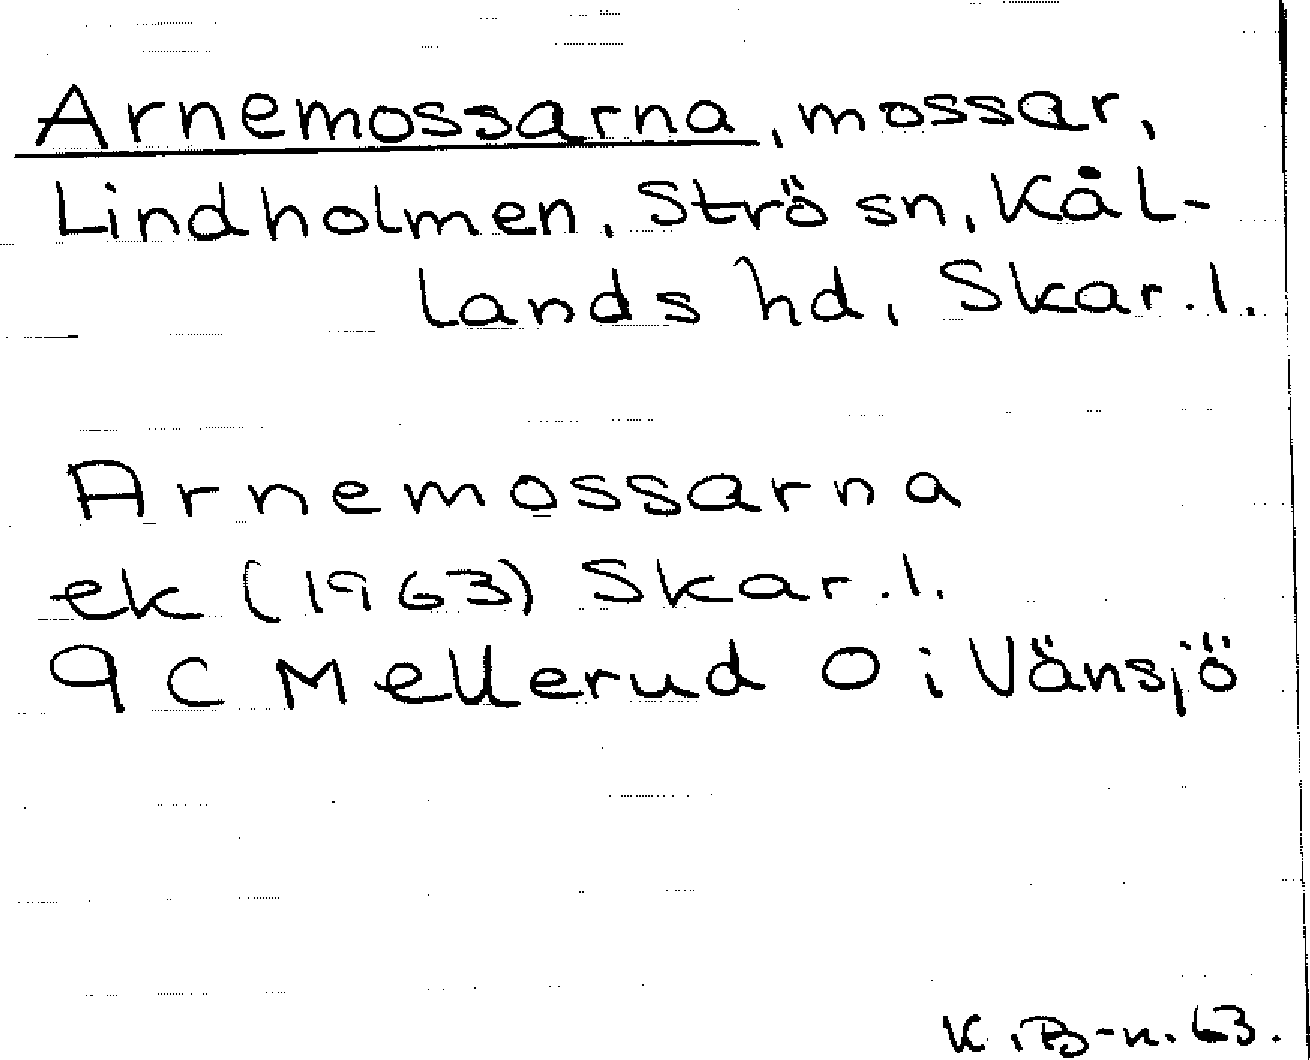 Arnemossarna, mossar,
Lindholmen, Strö sn, Kål-
lands hd, Skar. l.
Arnemossarna
ek (1963) Skar. l.
9 C Mellerud O i Vänsjö
K. B-n. 63.